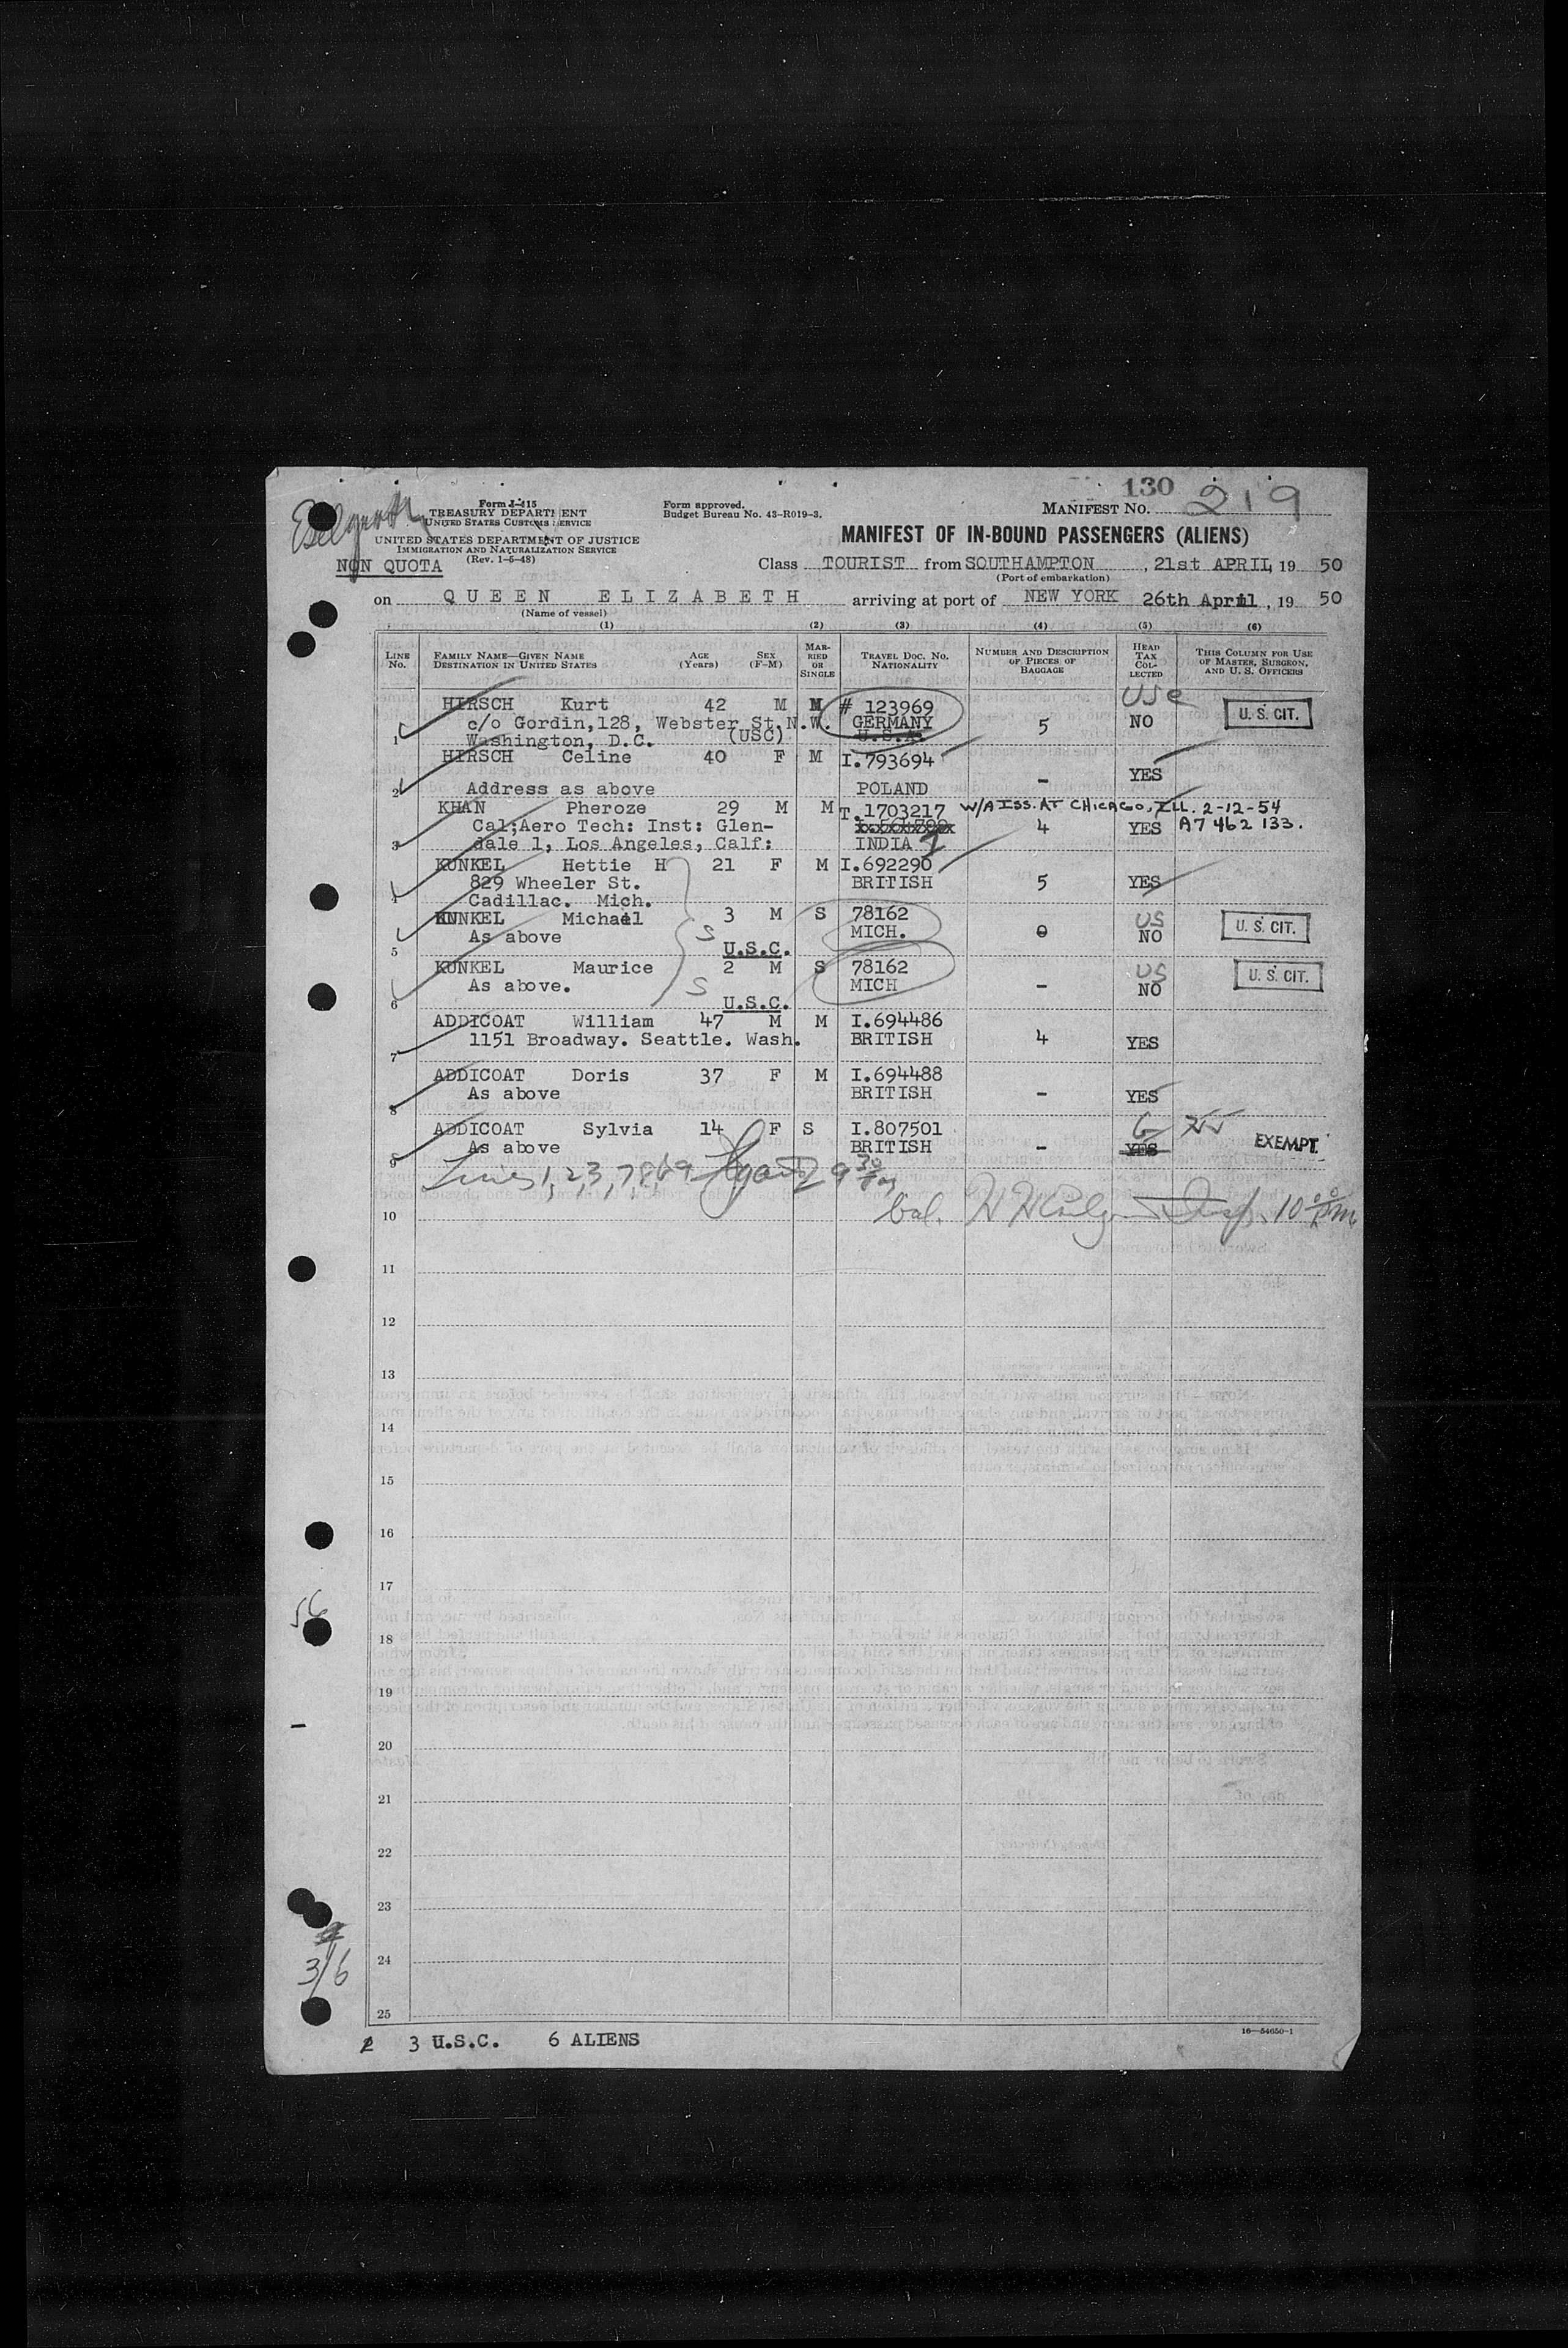 130
Form I-415
TREASURY DEPARTMENT
UNITED STATES CUSTOMS SERVICE
UNITED STATES DEPARTMENT OF JUSTICE
IMMIGRATION AND NATURALIZATION SERVICE
(Rev. 1-6-48)
NON QUOTA
Form approved.
Budget Bureau No. 43-R019-3.
MANIFEST NO. 219
MANIFEST OF IN-BOUND PASSENGERS (ALIENS)
Class TOURIST from SOUTHAMPTON, 21st APRIL, 19 50
(Port of embarkation)
on QUEEN ELIZABETH arriving at port of NEW YORK 26th April, 19 50
(Name of vessel)
(1) (2) (3) (4) (5) (6)
LINE NO. FAMILY NAME—GIVEN NAME DESTINATION IN UNITED STATES AGE (Years) SEX (F-M) MARRIED OR SINGLE TRAVEL DOC. NO. NATIONALITY NUMBER AND DESCRIPTION OF PIECES OF BAGGAGE HEAD TAX COLLECTED THIS COLUMN FOR USE OF MASTER, SURGEON, AND U. S. OFFICERS
HIRSCH Kurt 42 M M # 123969 USC
c/o Gordin,128, Webster St.N.W. GERMANY 5 NO U. S. CIT.
1 Washington, D.C. (USC) U.S.A.
HIRSCH Celine 40 F M I.793694
2 Address as above POLAND - YES
KHAN Pheroze 29 M M T.1703217 W/A ISS. AT CHICAGO, ILL. 2-12-54
Cal;Aero Tech: Inst: Glen- 4 YES A7 462 133.
3 dale 1, Los Angeles, Calf: INDIA
KUNKEL Hettie H 21 F M I.692290
829 Wheeler St. BRITISH 5 YES
4 Cadillac. Mich.
KUNKEL Michael 3 M S 78162 US
As above S MICH. 0 NO U. S. CIT.
5 U.S.C.
KUNKEL Maurice 2 M S 78162 US
As above. S MICH - NO U. S. CIT.
6 U.S.C.
ADDICOAT William 47 M M I.694486
7 1151 Broadway. Seattle. Wash. BRITISH 4 YES
ADDICOAT Doris 37 F M I.694488
8 As above BRITISH - YES
ADDICOAT Sylvia 14 F S I.807501
9 As above BRITISH - YES EXEMPT.
Lines 1, 2, 3, 7, 8, & 9 9 30
10 Bal. Insp. 10 00 pm
11
12
13
14
15
16
17
56
18
19
20
21
22
23
24
3/6
25
3 U.S.C. 6 ALIENS
16—54650-1